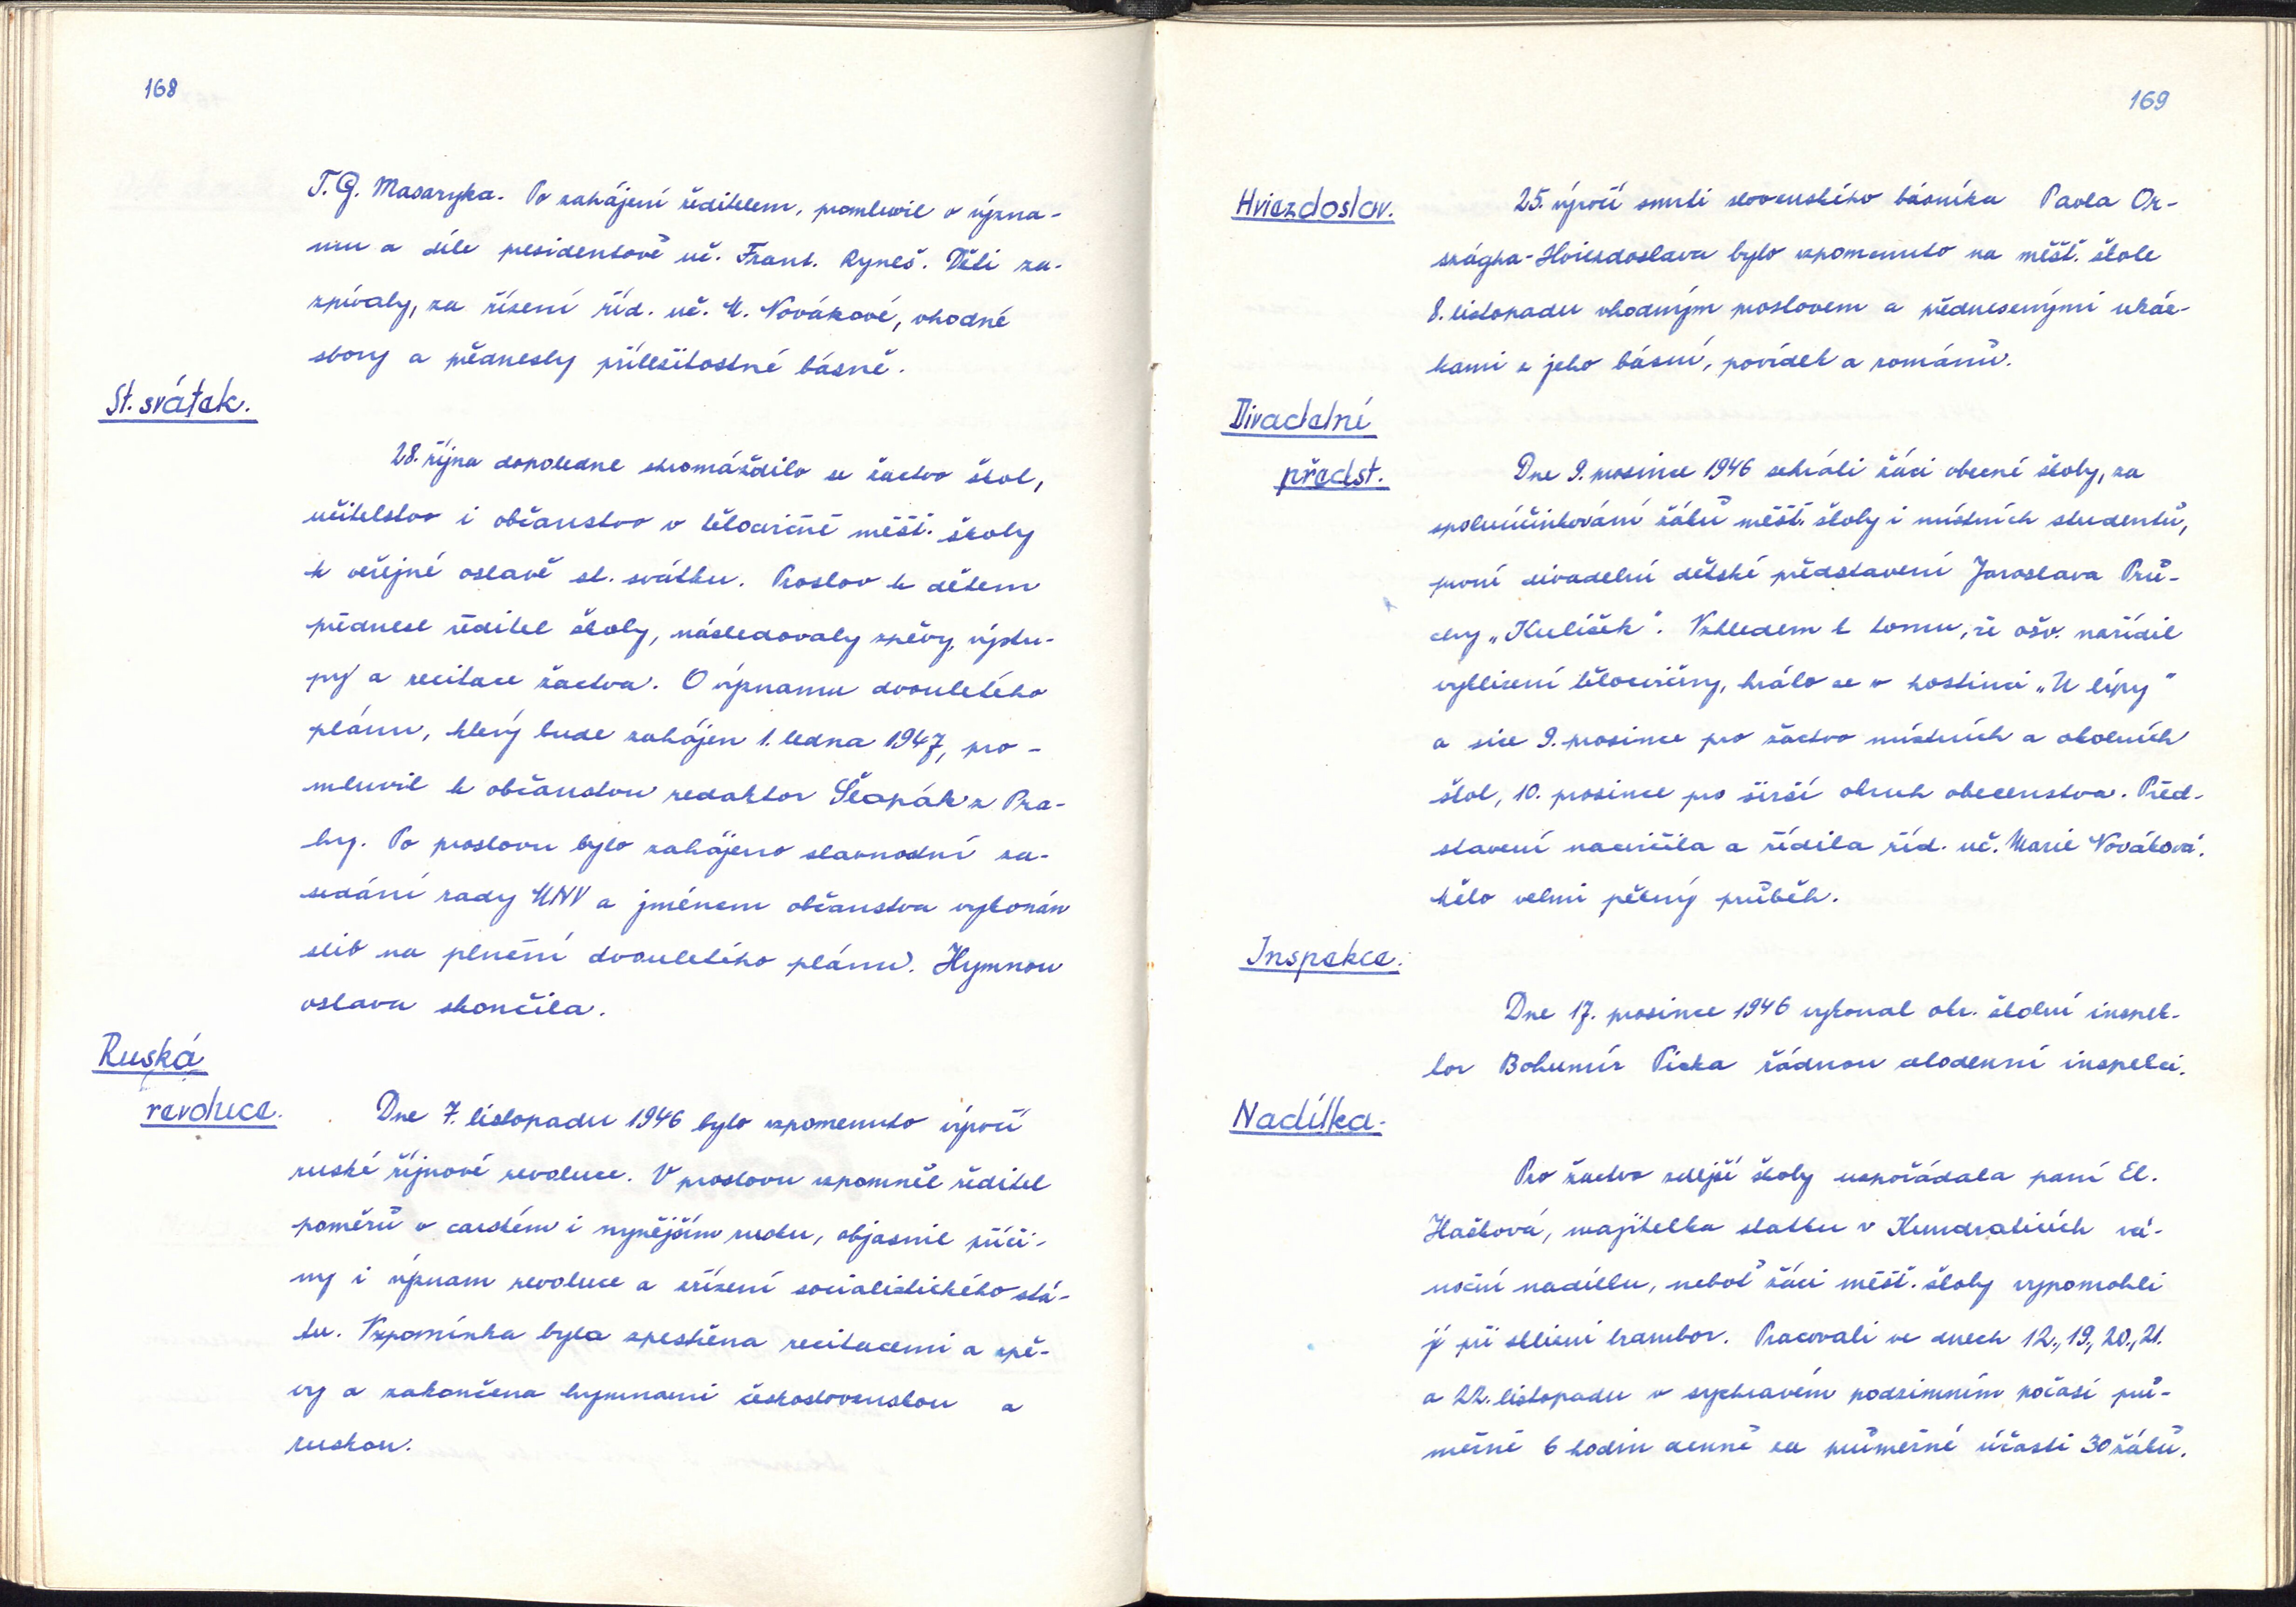 168
T. G. Masaryka. Po zahájení ředitelem, promluvil o význa-
mu a díle presidentově uč. Frant. Ryneš. Děti za-
zpívaly, za řízení říd. uč. M. Novákové, vhodné
sbory a přednesly příležitostné básně.
St. svátek.
28. října dopoledne shromáždilo se žactvo škol,
učitelstvo i občanstvo v tělocvičně měšť. školy
k veřejné oslavě st. svátku. Proslov k dětem
přednesl ředitel školy, následovaly zpěvy, výstu-
py a recitace žactva. O významu dvouletého
plánu, který bude zahájen 1. ledna 1947, pro-
mluvil k občanstvu redaktor Šlapák z Pra-
hy. Po proslovu bylo zahájeno slavnostní za-
sedání rady MNV a jménem občanstva vykonán
slib na plnění dvouletého plánu. Hymnou
oslava skončila.
Ruská
revoluce.
Dne 7. listopadu 1946 bylo vzpomenuto výročí
ruské říjnové revoluce. V proslovu vzpomněl ředitel
poměrů v carském i nynějším rusku, objasnil příči-
ny i význam revoluce a zřízení socialistického stá-
tu. Vzpomínka byla zpestřena recitacemi a zpě-
vy a zakončena hymnami československou a
ruskou.
169
Hviezdoslav.
25. výročí smrti slovenského básníka Pavla Or-
szágha-Hviezdoslava bylo vzpomenuto na měšť. škole
8. listopadu vhodným proslovem a přednesenými ukáz-
kami z jeho básní, povídek a románů.
Divadelní
předst.
Dne 9. prosince 1946 sehráli žáci obecné školy, za
spoluúčinkování žáků měšť. školy i místních studentů,
první divadelní dětské představení Jaroslava Prů-
chy „Kulíšek“. Vzhledem k tomu, že ošv. nařídil
vyklizení tělocvičny, hrálo se v hostinci „U lípy“
a sice 9. prosince pro žactvo místních a okolních
škol, 10. prosince pro širší okruh obecenstva. Před-
stavení nacvičila a řídila říd. uč. Marie Nováková.
Mělo velmi pěkný průběh.
Inspekce.
Dne 17. prosince 1946 vykonal okr. školní inspek-
tor Bohumír Picka řádnou celodenní inspekci.
Nadílka.
Pro žactvo zdejší školy uspořádala paní El.
Hašková, majitelka statku v Kundraticích vá-
noční nadílku, neboť žáci měšť. školy vypomohli
jí při sklizni brambor. Pracovali ve dnech 12., 19., 20., 21.
a 22. listopadu v sychravém podzimním počasí prů-
měrně 6 hodin denně za průměrné účasti 30 žáků.